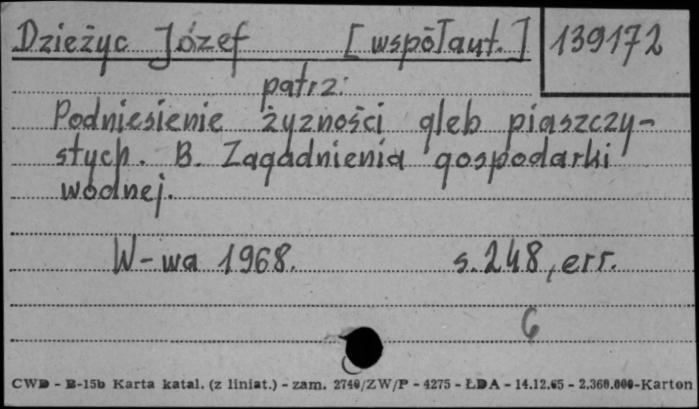 Dzieżyc Józef [współaut.] 139172
patrz:
Podniesienie żyzności gleb piaszczy-
stych. B. Zagadnienia gospodarki
wodnej.
W-wa 1968. s. 248, err.
6
CWD - B-15b Karta katal. (z liniat.) - zam. 2740/ZW/P - 4275 - ŁDA - 14.12.65 - 2.360.000-Karton